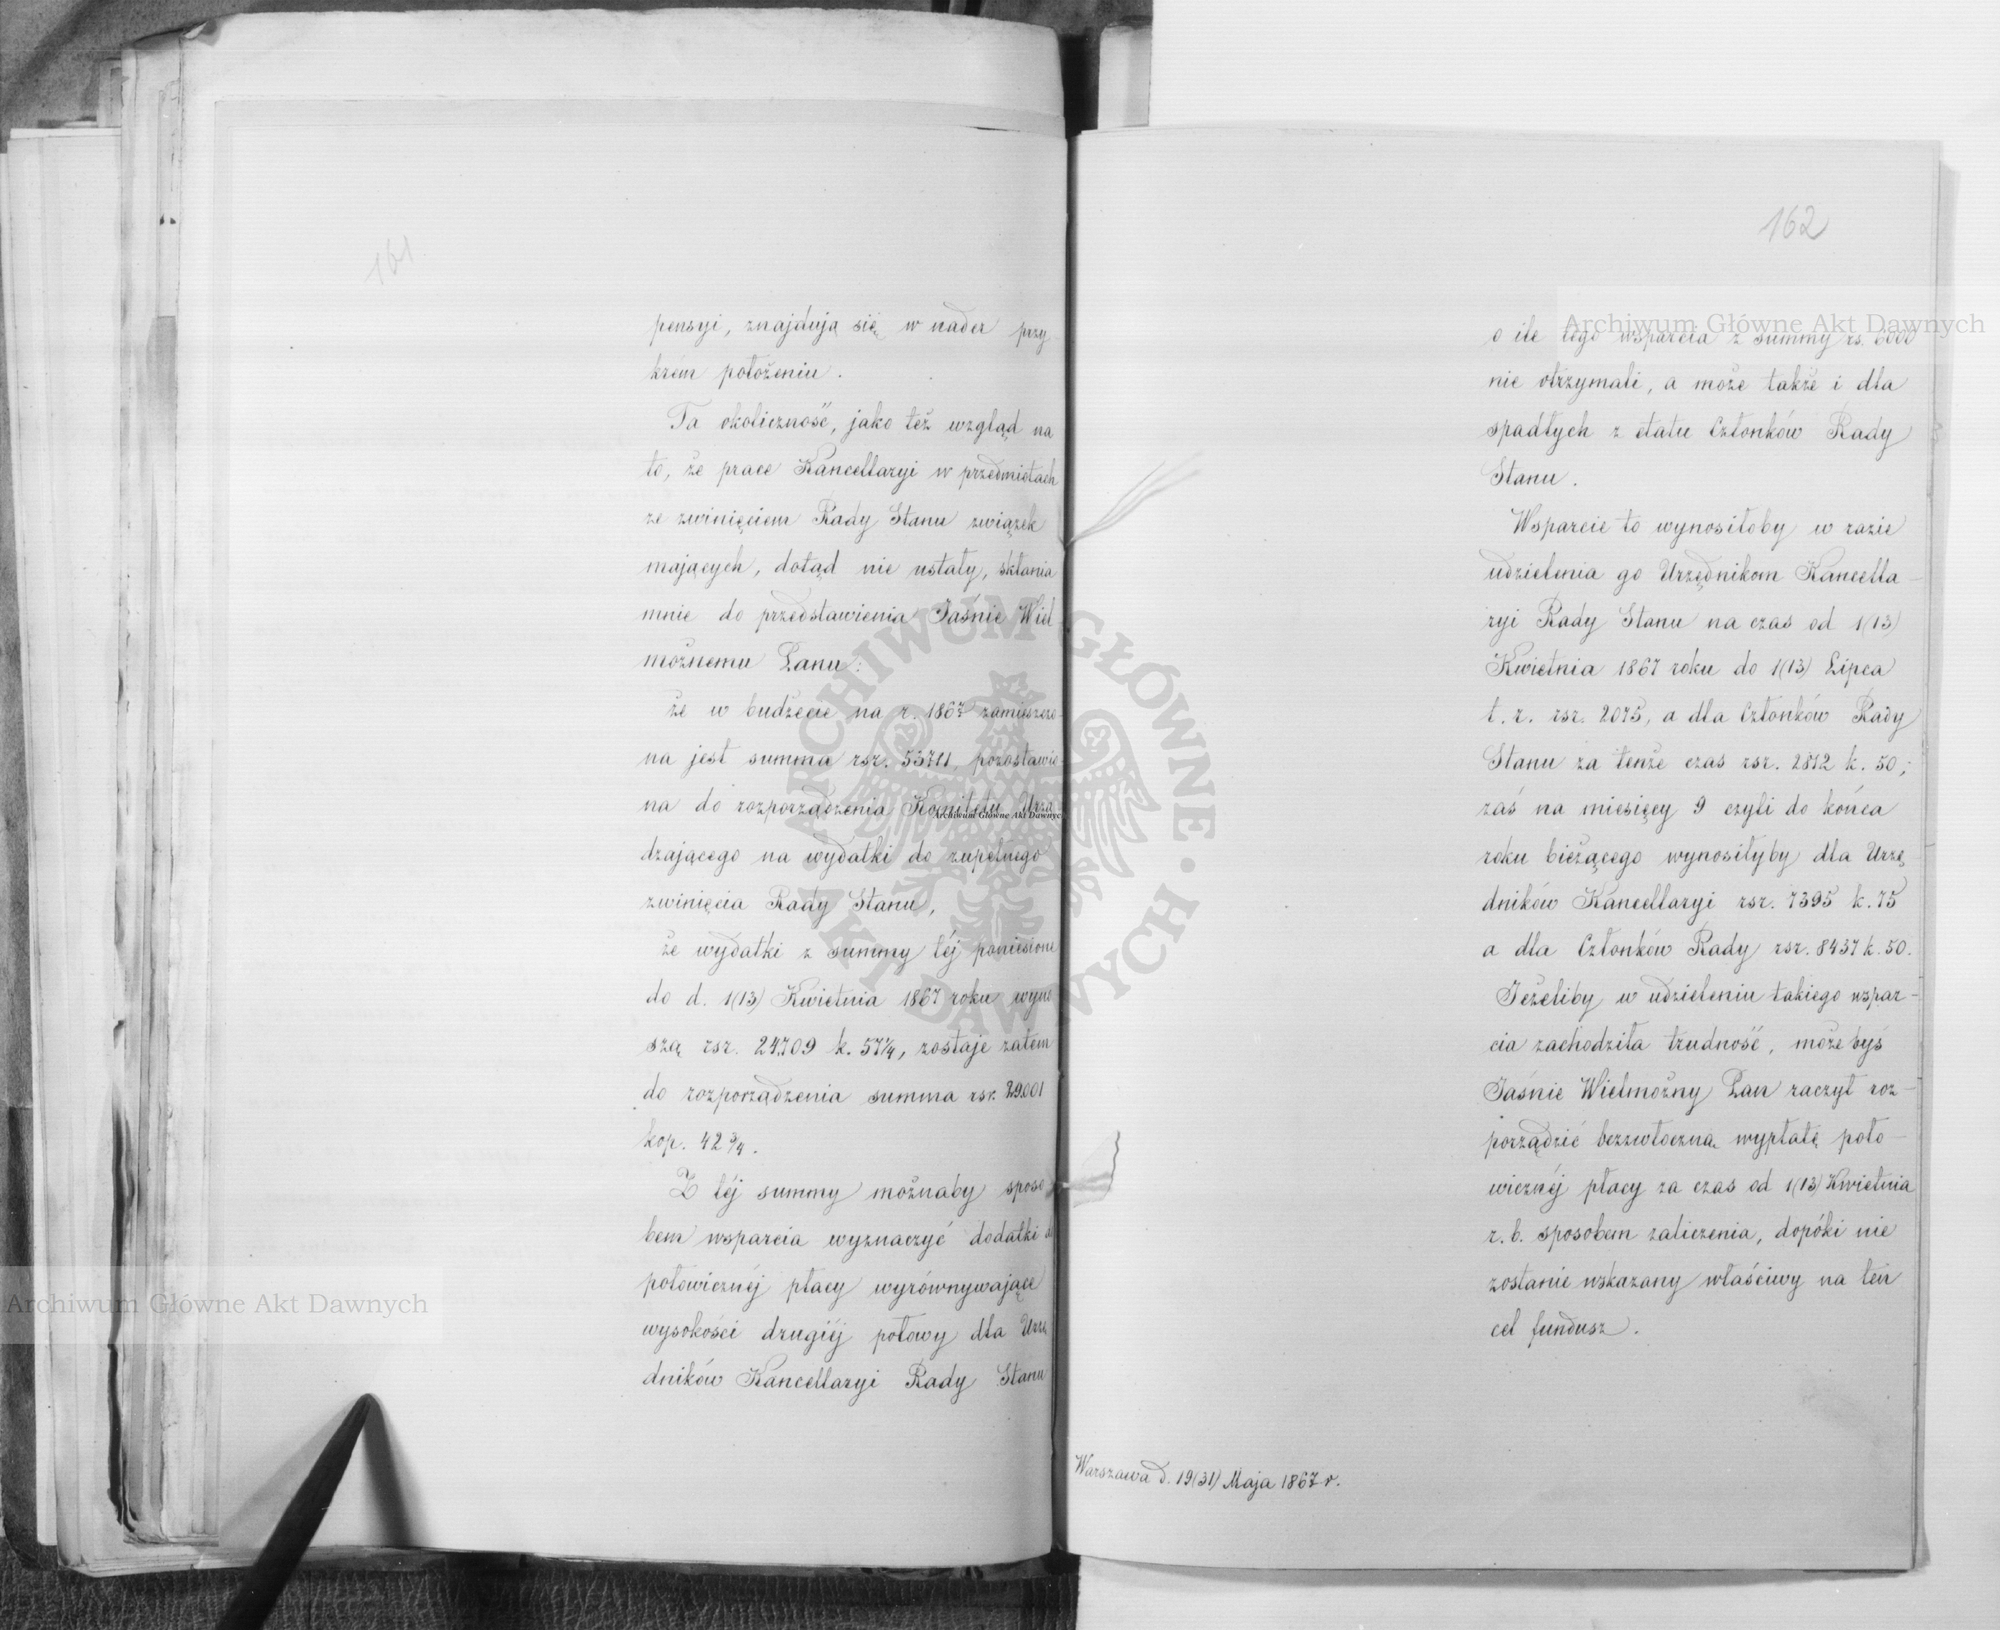 161
pensyi, znajdują się w nader przy
krém położeniu.
Ta okoliczność, jako też wzgląd na
to, że prace Kancellaryi w przedmiotach
ze zwinięciem Rady Stanu związek
mających, dotąd nie ustały, skłania
mnie do przedstawienia Jaśnie Wiel
możnemu Panu:
że w budżecie na r. 1867 zamieszczo-
na jest summa rsr. 53711, pozostawio-
na do rozporządzenia Komitetu Urzą
dzającego na wydatki do zupełnego
zwinięcia Rady Stanu,
że wydatki z summy téj poniesione
do d. 1(13) Kwietnia 1867 roku wyno
szą rsr. 24709 k. 57¼, zostaje zatem
do rozporządzenia summa rsr. 29001
kop. 42 ¾.
Z téj summy możnaby sposo
bem wsparcia wyznaczyć dodatki do
połowicznéj płacy wyrównywające
wysokości drugiéj połowy dla Urzę
dników Kancellaryi Rady Stanu
162
o ile tego wsparcia z summy rs. 6000
nie otrzymali, a może także i dla
spadłych z etatu Członków Rady
Stanu.
Wsparcie to wynosiłoby w razie
udzielenia go Urzędnikom Kancella-
ryi Rady Stanu na czas od 1(13)
Kwietnia 1867 roku do 1(13) Lipca
t. r. rsr. 2075, a dla Członków Rady
Stanu za tenże czas rsr. 2812 k. 50;
zaś na miesięcy 9 czyli do końca
roku bieżącego wynosiłyby dla Urzę
dników Kancellaryi rsr. 7395 k. 75
a dla Członków Rady rsr. 8437 k. 50.
Jeżeliby w udzieleniu takiego wspar-
cia zachodziła trudność, możebyś
Jaśnie Wielmożny Pan raczył roz-
porządzić bezzwłoczną wypłatę poło-
wicznéj płacy za czas od 1(13) Kwietnia
r. b. sposobem zaliczenia, dopóki nie
zostanie wskazany właściwy na ten
cel fundusz.
Warszawa d. 19(31) Maja 1867 r.
Archiwum Główne Akt Dawnych
Archiwum Główne Akt Dawnych
Archiwum Główne Akt Dawnych
ARCHIWUM GŁÓWNE · AKT DAWNYCH ·